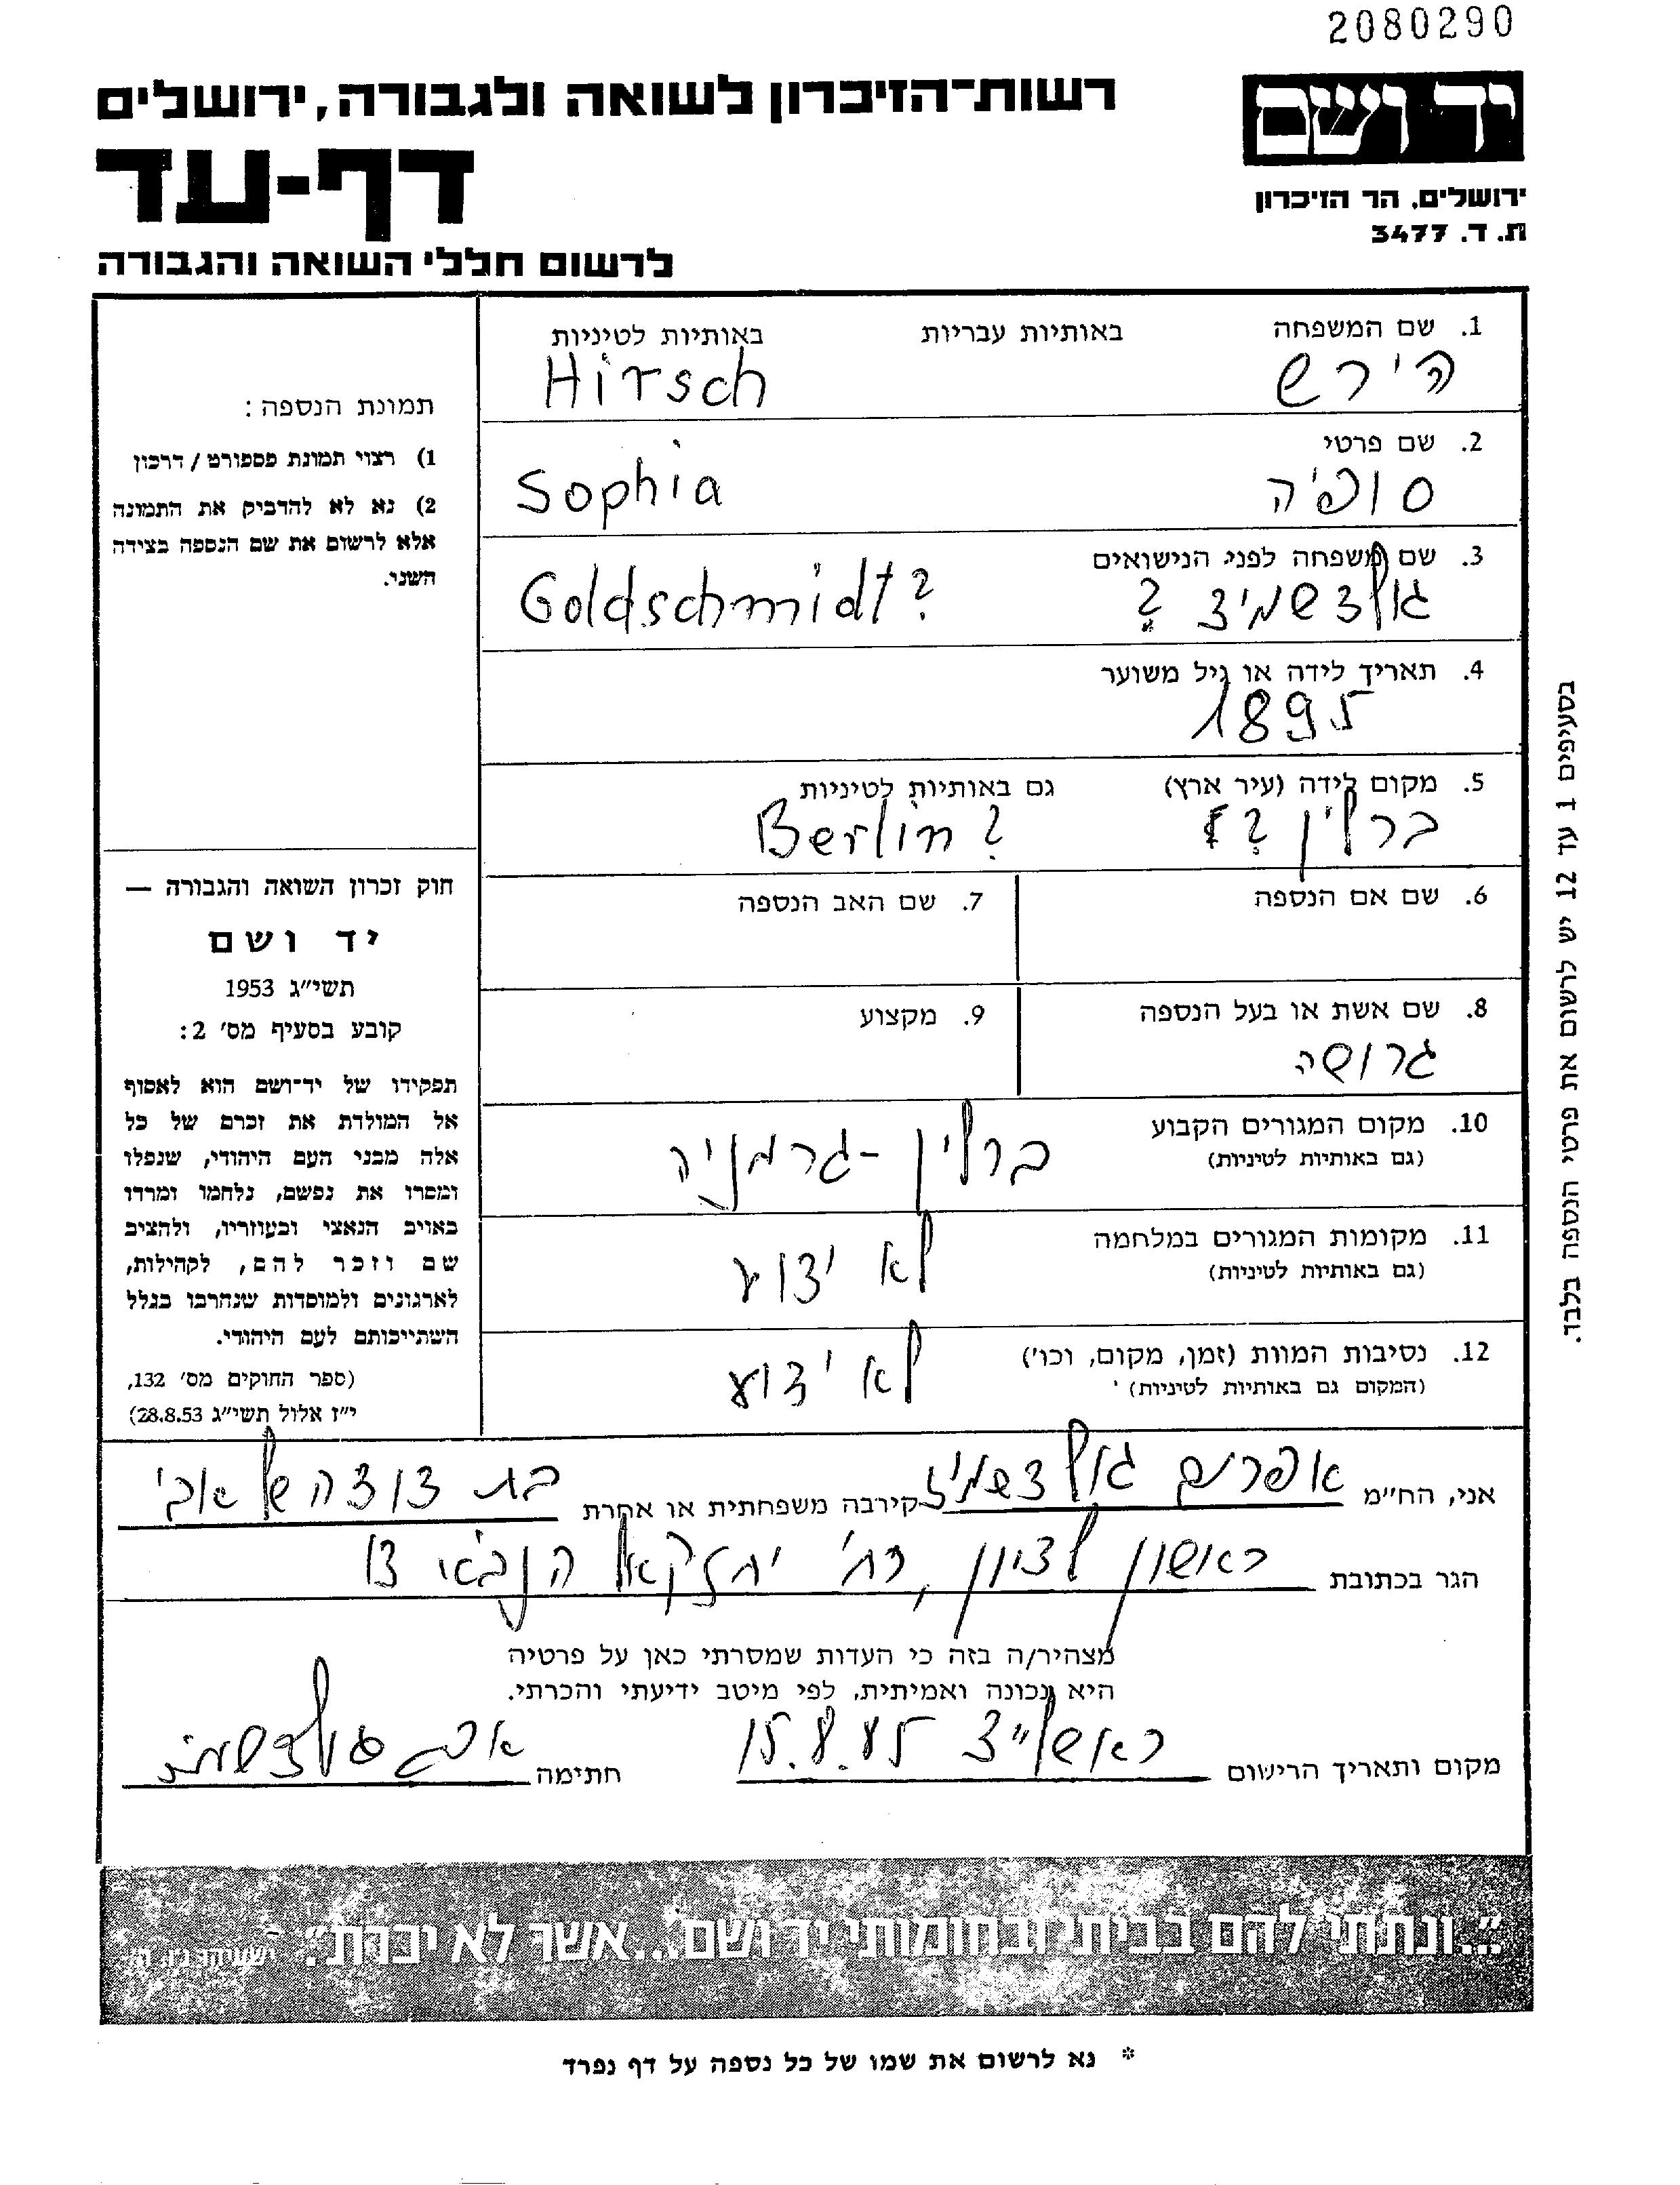 2080290
רשות־הזיכרון לשואה ולגבורה, ירושלים
יד ושם
דף-עד
ירושלים, הר הזיכרון
ת. ד. 3477
לרשום חללי השואה והגבורה
1. שם המשפחה באותיות עבריות באותיות לטיניות
הירש Hirsch
2. שם פרטי
סופיה Sophia
3. שם משפחה לפני הנישואים
גולדשמידט ? Goldschmidt ?
4. תאריך לידה או גיל משוער
1895
5. מקום לידה (עיר ארץ) גם באותיות לטיניות
ברלין ? Berlin ?
6. שם אם הנספה 7. שם האב הנספה
8. שם אשת או בעל הנספה 9. מקצוע
גרושה
10. מקום המגורים הקבוע
(גם באותיות לטיניות)
ברלין - גרמניה
11. מקומות המגורים במלחמה
(גם באותיות לטיניות)
לא ידוע
12. נסיבות המוות (זמן, מקום, וכו')
(המקום גם באותיות לטיניות)
לא ידוע
תמונת הנספה :
1) רצוי תמונת פספורט / דרכון
2) נא לא להדביק את התמונה
אלא לרשום את שם הנספה בצידה
השני.
חוק זכרון השואה והגבורה —
יד ושם
תשי״ג 1953
קובע בסעיף מס׳ 2:
תפקידו של יד־ושם הוא לאסוף
אל המולדת את זכרם של כל
אלה מבני העם היהודי, שנפלו
ומסרו את נפשם, נלחמו ומרדו
באויב הנאצי ובעוזריו, ולהציב
שם וזכר להם, לקהילות,
לארגונים ולמוסדות שנחרבו בגלל
השתייכותם לעם היהודי.
(ספר החוקים מס׳ 132,
י״ז אלול תשי״ג 28.8.53)
בסעיפים 1 עד 12 יש לרשום את פרטי הנספה בלבד.
אני, הח״מ אפרים גולדשמיד קירבה משפחתית או אחרת בת דודה של אבי
הגר בכתובת ראשון לציון, רח' יחזקאל הנביא 13
מצהיר/ה בזה כי העדות שמסרתי כאן על פרטיה
היא נכונה ואמיתית, לפי מיטב ידיעתי והכרתי.
מקום ותאריך הרישום ראשל"צ 15.8.85 חתימה
״...ונתתי להם בביתי ובחומותי יד ושם... אשר לא יכרת״. ישעיהו נ״ו, ה׳
* נא לרשום את שמו של כל נספה על דף נפרד